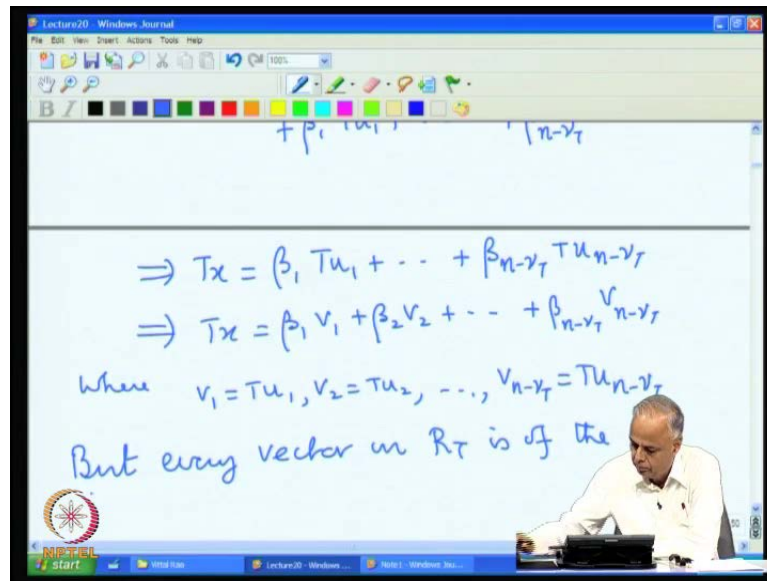 Lecture20 - Windows Journal
File Edit View Insert Actions Tools Help
100%
B I
+ β₁ Tu₁,
n-ν_T
⇒ Tx = β₁ Tu₁ + -- + β_{n-ν_T} Tu_{n-ν_T}
⇒ Tx = β₁ V₁ + β₂ V₂ + -- + β_{n-ν_T} V_{n-ν_T}
Where V₁ = Tu₁, V₂ = Tu₂, ..., V_{n-ν_T} = Tu_{n-ν_T}
But every vector in R_T is of the
NPTEL
start Vittal Rao Lecture20 - Windows ... Note1 - Windows Jou...